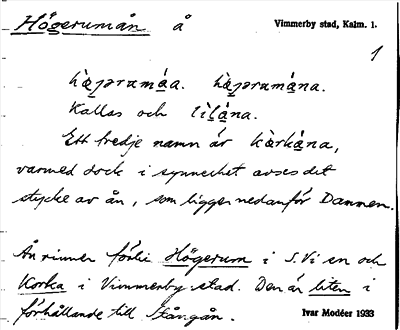 Högerumån å
Vimmerby stad, Kalm. l.
1
Kallas och
Ett tredje namn är
varmed dock i synnerhet avses det
stycke av ån, som ligger nedanför Dammen.
Ån rinner förbi Högerum i S. Vi sn och
Korka i Vimmerby stad. Den är liten i
förhållande till Stångån.
Ivar Modéer 1933